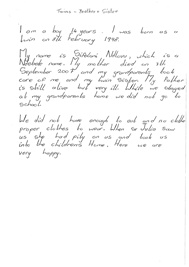 Twins - Brother + Sister
I am a boy 14 years. I was born as a
twin on 11th February 1998.
My name is Ndlovu, which is a
Ndebele name. My mother died on 7th
September 2008 and my grandparents took
care of me and my twin sister. My Father
is still alive but very ill. While we stayed
at my grandparents home we did not go to
school.
We did not have enough to eat and no
proper clothes to wear. When sr Julia saw
us she had pity on us and took us
into the childrens Home. Here we are
very happy.